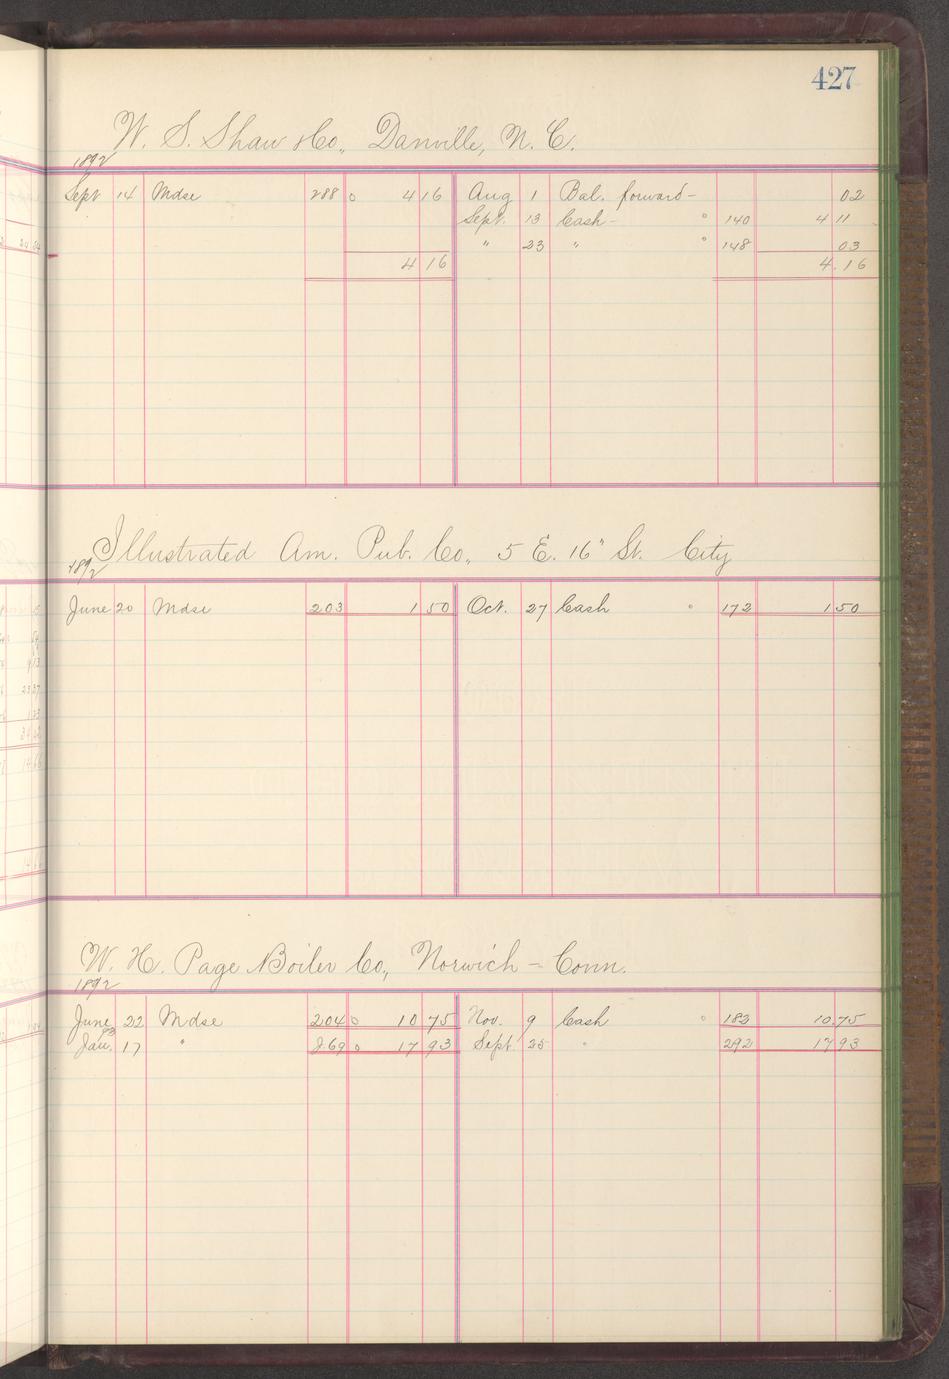 427
W. S. Shaw & Co., Danville, N. C.
1892
Sept 14 Mdse 288 0 4 16 Aug 1 Bal. forward - 02
Sept. 13 Cash - " 140 4 11
" 23 " " 148 03
4 16 4.16
Illustrated Am. Pub. Co., 5 E. 16" St. City
1892
June 20 Mdse 203 1 50 Oct. 27 Cash " 172 1 50
W. H. Page Boiler Co., Norwich - Conn.
1892
June 22 Mdse 204 0 10 75 Nov. 9 Cash 0 183 10.75
93
Jan. 17 " 269 0 17 93 Sept. 25 " 292 17 93